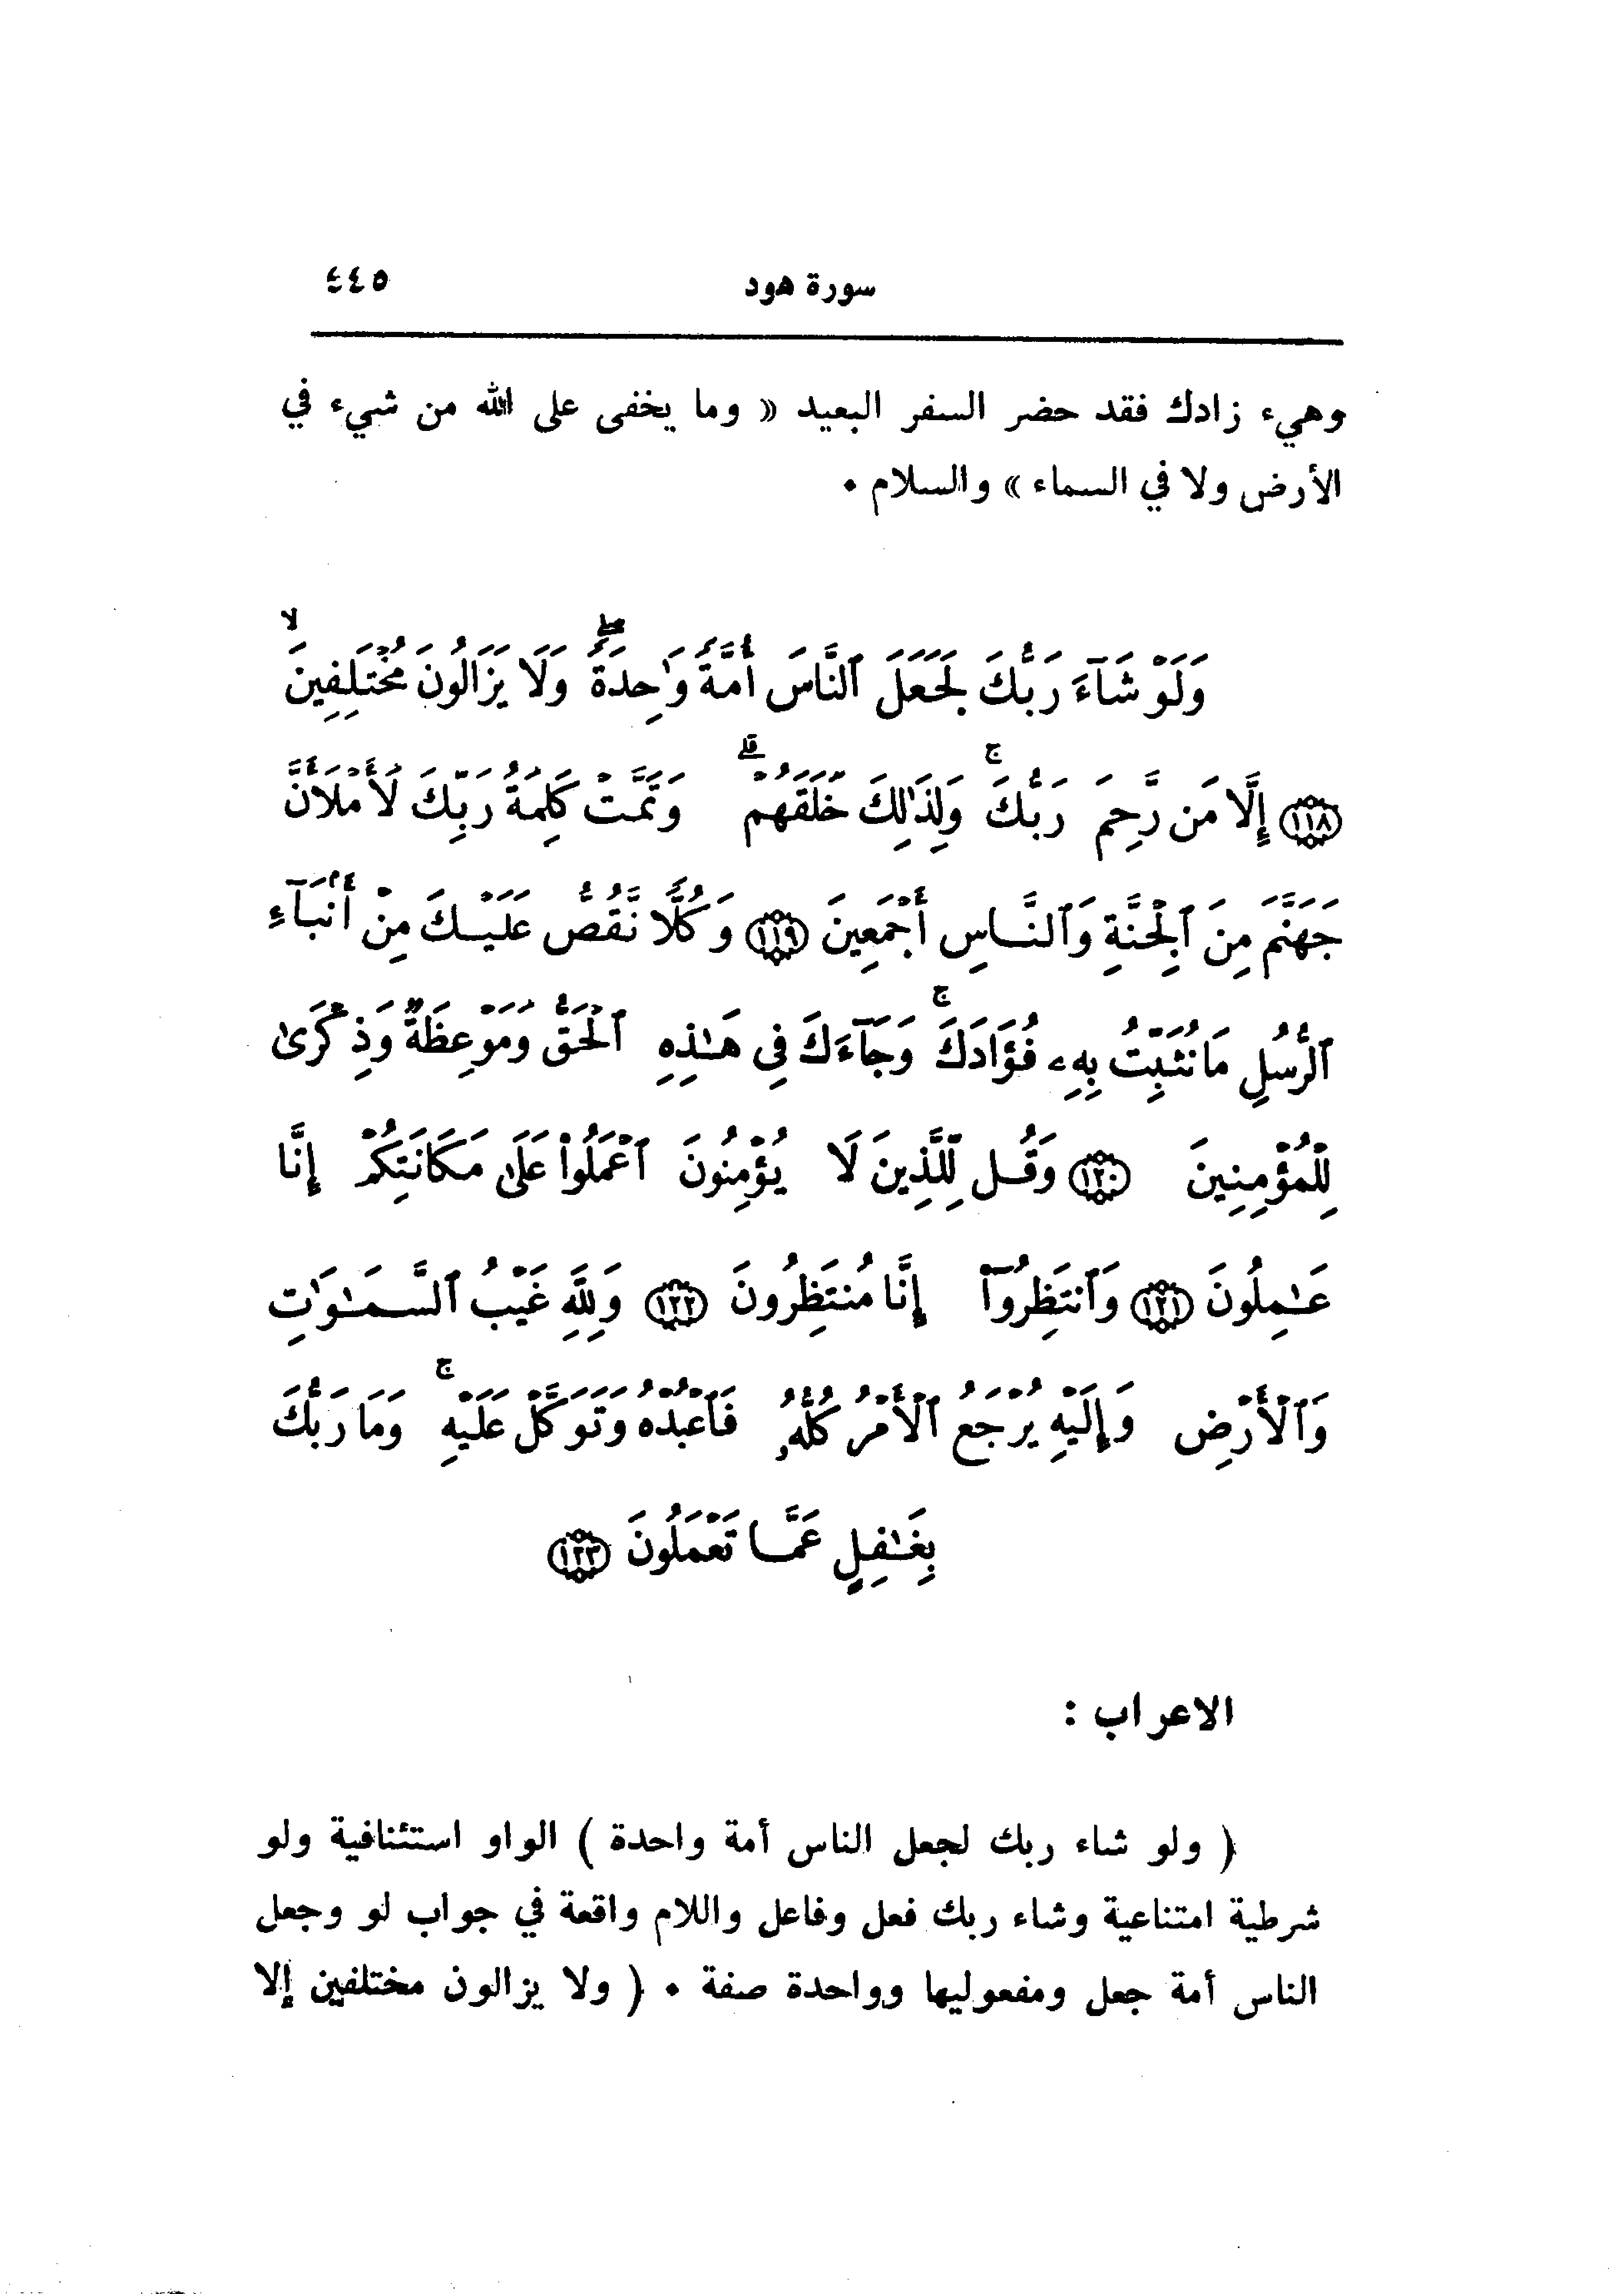 سورة هود ٤٤٥
وهيء زادك فقد حضر السفر البعيد « وما يخفى على الله من شيء في
الأرض ولا في السماء » والسلام .
وَلَوْ شَآءَ رَبُّكَ لَجَعَلَ ٱلنَّاسَ أُمَّةً وَٰحِدَةً ۖ وَلَا يَزَالُونَ مُخْتَلِفِينَ ۙ
﴿١١٨﴾ إِلَّا مَن رَّحِمَ رَبُّكَ ۚ وَلِذَٰلِكَ خَلَقَهُمْ ۗ وَتَمَّتْ كَلِمَةُ رَبِّكَ لَأَمْلَأَنَّ
جَهَنَّمَ مِنَ ٱلْجِنَّةِ وَٱلنَّاسِ أَجْمَعِينَ ﴿١١٩﴾ وَكُلًّا نَّقُصُّ عَلَيْكَ مِنْ أَنۢبَآءِ
ٱلرُّسُلِ مَا نُثَبِّتُ بِهِۦ فُؤَادَكَ ۚ وَجَآءَكَ فِى هَـٰذِهِ ٱلْحَقُّ وَمَوْعِظَةٌ وَذِكْرَىٰ
لِلْمُؤْمِنِينَ ﴿١٢٠﴾ وَقُل لِّلَّذِينَ لَا يُؤْمِنُونَ ٱعْمَلُوا۟ عَلَىٰ مَكَانَتِكُمْ إِنَّا
عَـٰمِلُونَ ﴿١٢١﴾ وَٱنتَظِرُوٓا۟ إِنَّا مُنتَظِرُونَ ﴿١٢٢﴾ وَلِلَّهِ غَيْبُ ٱلسَّمَـٰوَٰتِ
وَٱلْأَرْضِ وَإِلَيْهِ يُرْجَعُ ٱلْأَمْرُ كُلُّهُۥ فَٱعْبُدْهُ وَتَوَكَّلْ عَلَيْهِ ۚ وَمَا رَبُّكَ
بِغَـٰفِلٍ عَمَّا تَعْمَلُونَ ﴿١٢٣﴾
الاعراب :
( ولو شاء ربك لجعل الناس أمة واحدة ) الواو استئنافية ولو
شرطية امتناعية وشاء ربك فعل وفاعل واللام واقعة في جواب لو وجعل
الناس أمة جعل ومفعوليها وواحدة صفة . ( ولا يزالون مختلفين إلا